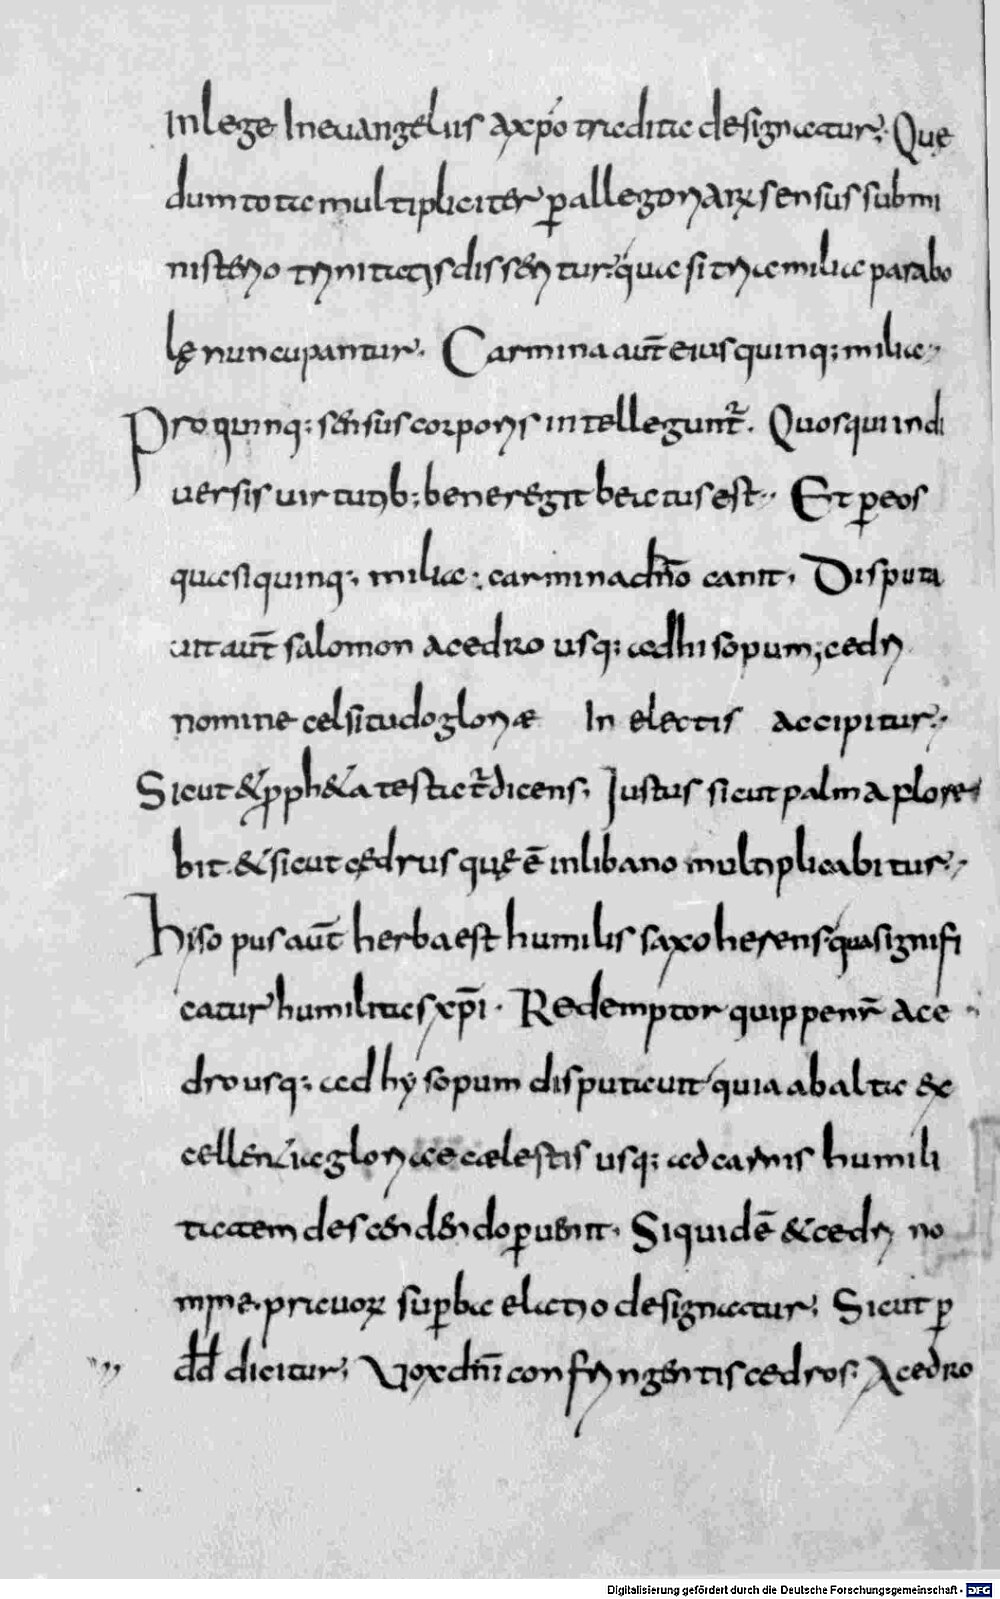 In lege In euangeliis a xp̄o tradita designatur; Quę
dum tota multipliciter ꝑ allegoriarꝝ sensus submi
nisterio trinitatis disseritur; quasi tria milia parabo
lę nuncupantur. Carmina aut̄ eius quinq; milia;
Pro quinq; sensus corporis intellegunt̃. Quos qui in di
uersis uirtutib; bene regit beatus est; Et ꝑ eos
quasi quinq; milia; carmina dn̄o canit, Disputa
uit aut̄ salomon a cedro usq; ad hisopum; cedri
nomine celsitudo gloriæ In electis accipitur;
Sicut & ꝓph&a testat̃ dicens; Iustus sicut palma flore
bit. & sicut cędrus quę ē in libano multiplicabitur;
hisopus aut̄ herba est humilis saxo herens qua signifi
catur humilitas xp̄i. Redemptor quippe nr̄ a ce
dro usq; ad hysopum disputauit quia ab alta ex
cellentia gloriae caelestis usq; ad carnis humili
tatem descendendo ꝑuenit. Siquidē & cedri no
mine. prauorꝝ suꝑba elatio designatur; Sicut ꝑ
dd̄ dicitur; Uox dn̄i confringentis cedros; A cedro
Digitalisierung gefördert durch die Deutsche Forschungsgemeinschaft - DFG